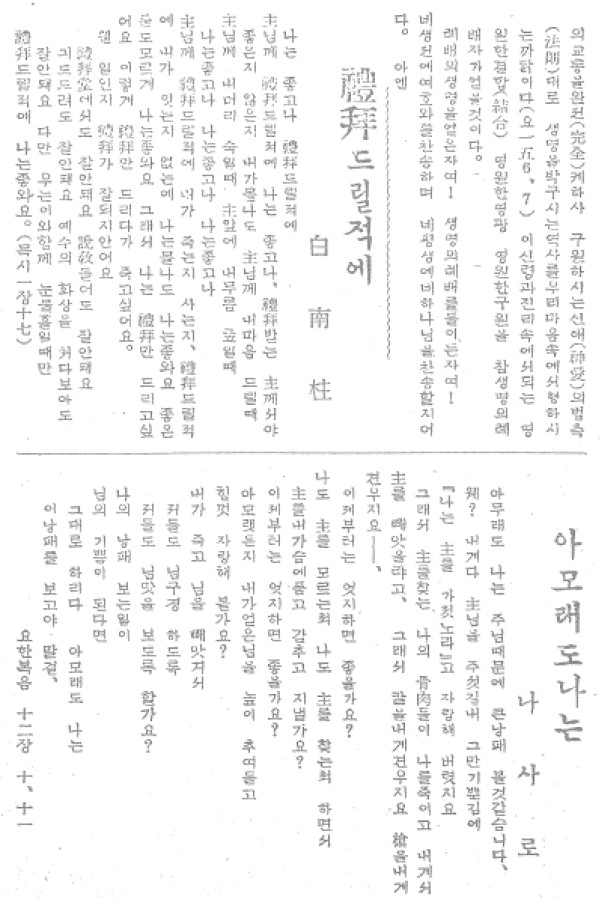 의교통을완전(完全)케하사 구원하시는신애(神愛)의법측
(法則)대로 생명을박구시는역사를우리마음속에서형하시
는까닭이다(요一五6、7) 이신령과진리속에서되는 영
원한결합(結合) 영원한영광 영원한구원을 참생명의례
배자가얻을것이다。
례배의생명을얻은자여! 생명의례배를들이는자여!
네생전에여호와를찬송하며 네평생에네하나님를찬송할지어
다。 아멘
禮拜드릴적에
白南柱
나는 좋고나 禮拜드릴적에
主님께 禮拜드릴적에 나는 좋고나、禮拜받는 主께서야
좋은지 않은지 내가몰나도 主님께 내마음 드릴때
主님께 내머리 숙일때 主앞에 내무릎 굽일때
나는좋고나 나는좋고나 나는좋고나
主님께 禮拜드릴적에 내가 죽는지 사는지、禮拜드릴적
에 내가 잇는지 없는지 나는몰나도 나는좋와요 좋은
줄도모르게 나는좋와요 그래서 나는 禮拜만 드리고싶
어요 이렇게 禮拜만 드리다가 죽고싶어요。
웬 일인지 禮拜가 잘되지안어요
禮拜堂에서도 잘안돼요 說敎들어도 잘안돼요
긔도드려도 잘안돼요 예수의 화상을 처다보아도
잘안돼요 다만 우는이와함께 눈물흘일때만
禮拜드릴적에 나는좋와요。(묵시一장十七)
아모래도나는
나사로
아무래도 나는 주님때문에 큰낭패 볼것같습니다、
웨? 내게다 主님을 주섯길내 그만기쁜김에
『나는 主를 가젓노라』고 자랑해 버렷지요
그래서 主를찾는 나의 骨肉들이 나를죽이고 내게서
主를 빼앗을랴고、 그래서 칼을내게견우지요 槍을내게
견우지요——、
이처부러는 엇지하면 좋을가요?
나도 主를 모르는척 나도 主를 찾는척 하면서
主를내가슴에품고 감추고 지낼가요?
이처부러는 엇지하면 좋을가요?
아모랫든지 내가얻은님을 높이 추여들고
힘껏 자랑해 볼가요?
내가 죽고 님을 빼앗겨서
저들도 님구경 하도록
저들도 님맛을 보도록 할가요?
나의 낭패 보는일이
님의 기쁨이 된다면
그대로 하리다 아모래도 나는
이낭패를 보고야 말걸、
요한복음 十二장 十、十一